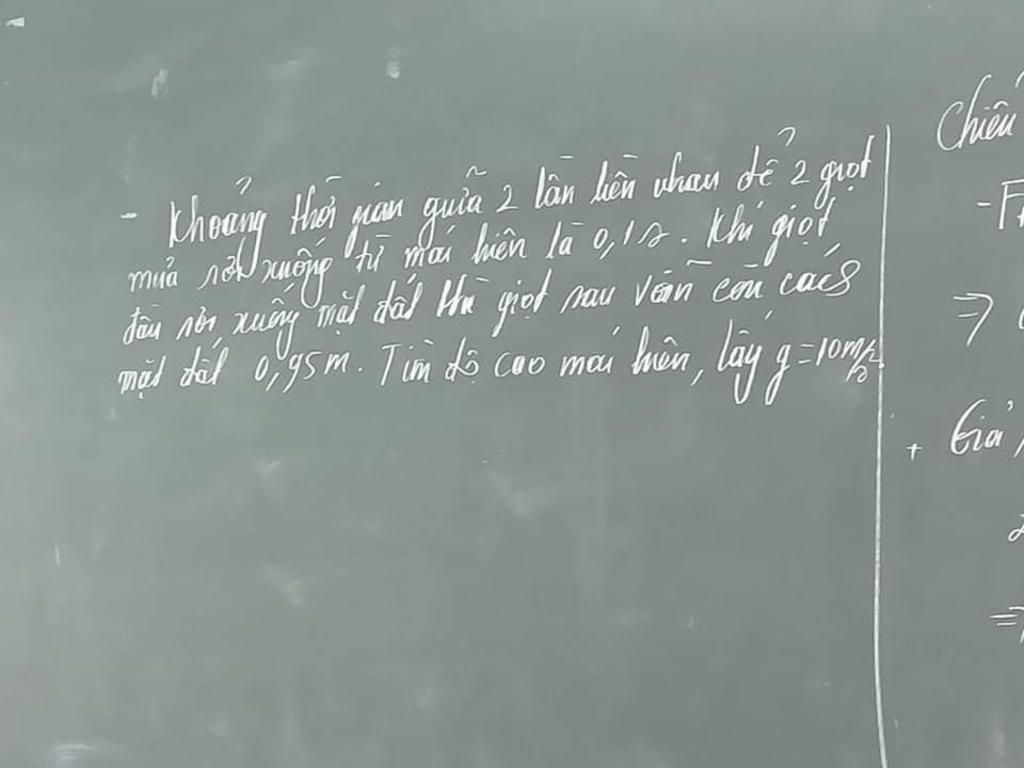 - Khoảng thời gian giữa 2 lần liên nhau để 2 giọt
mưa rơi xuống từ mái hiên là 0,1s. Khi giọt
đầu rơi xuống mặt đất thì giọt sau vẫn còn cách
mặt đất 0,95m. Tìm độ cao mái hiên, lấy g=10m/s
Chiếu
-
⇒
+ Giả
2
⇒